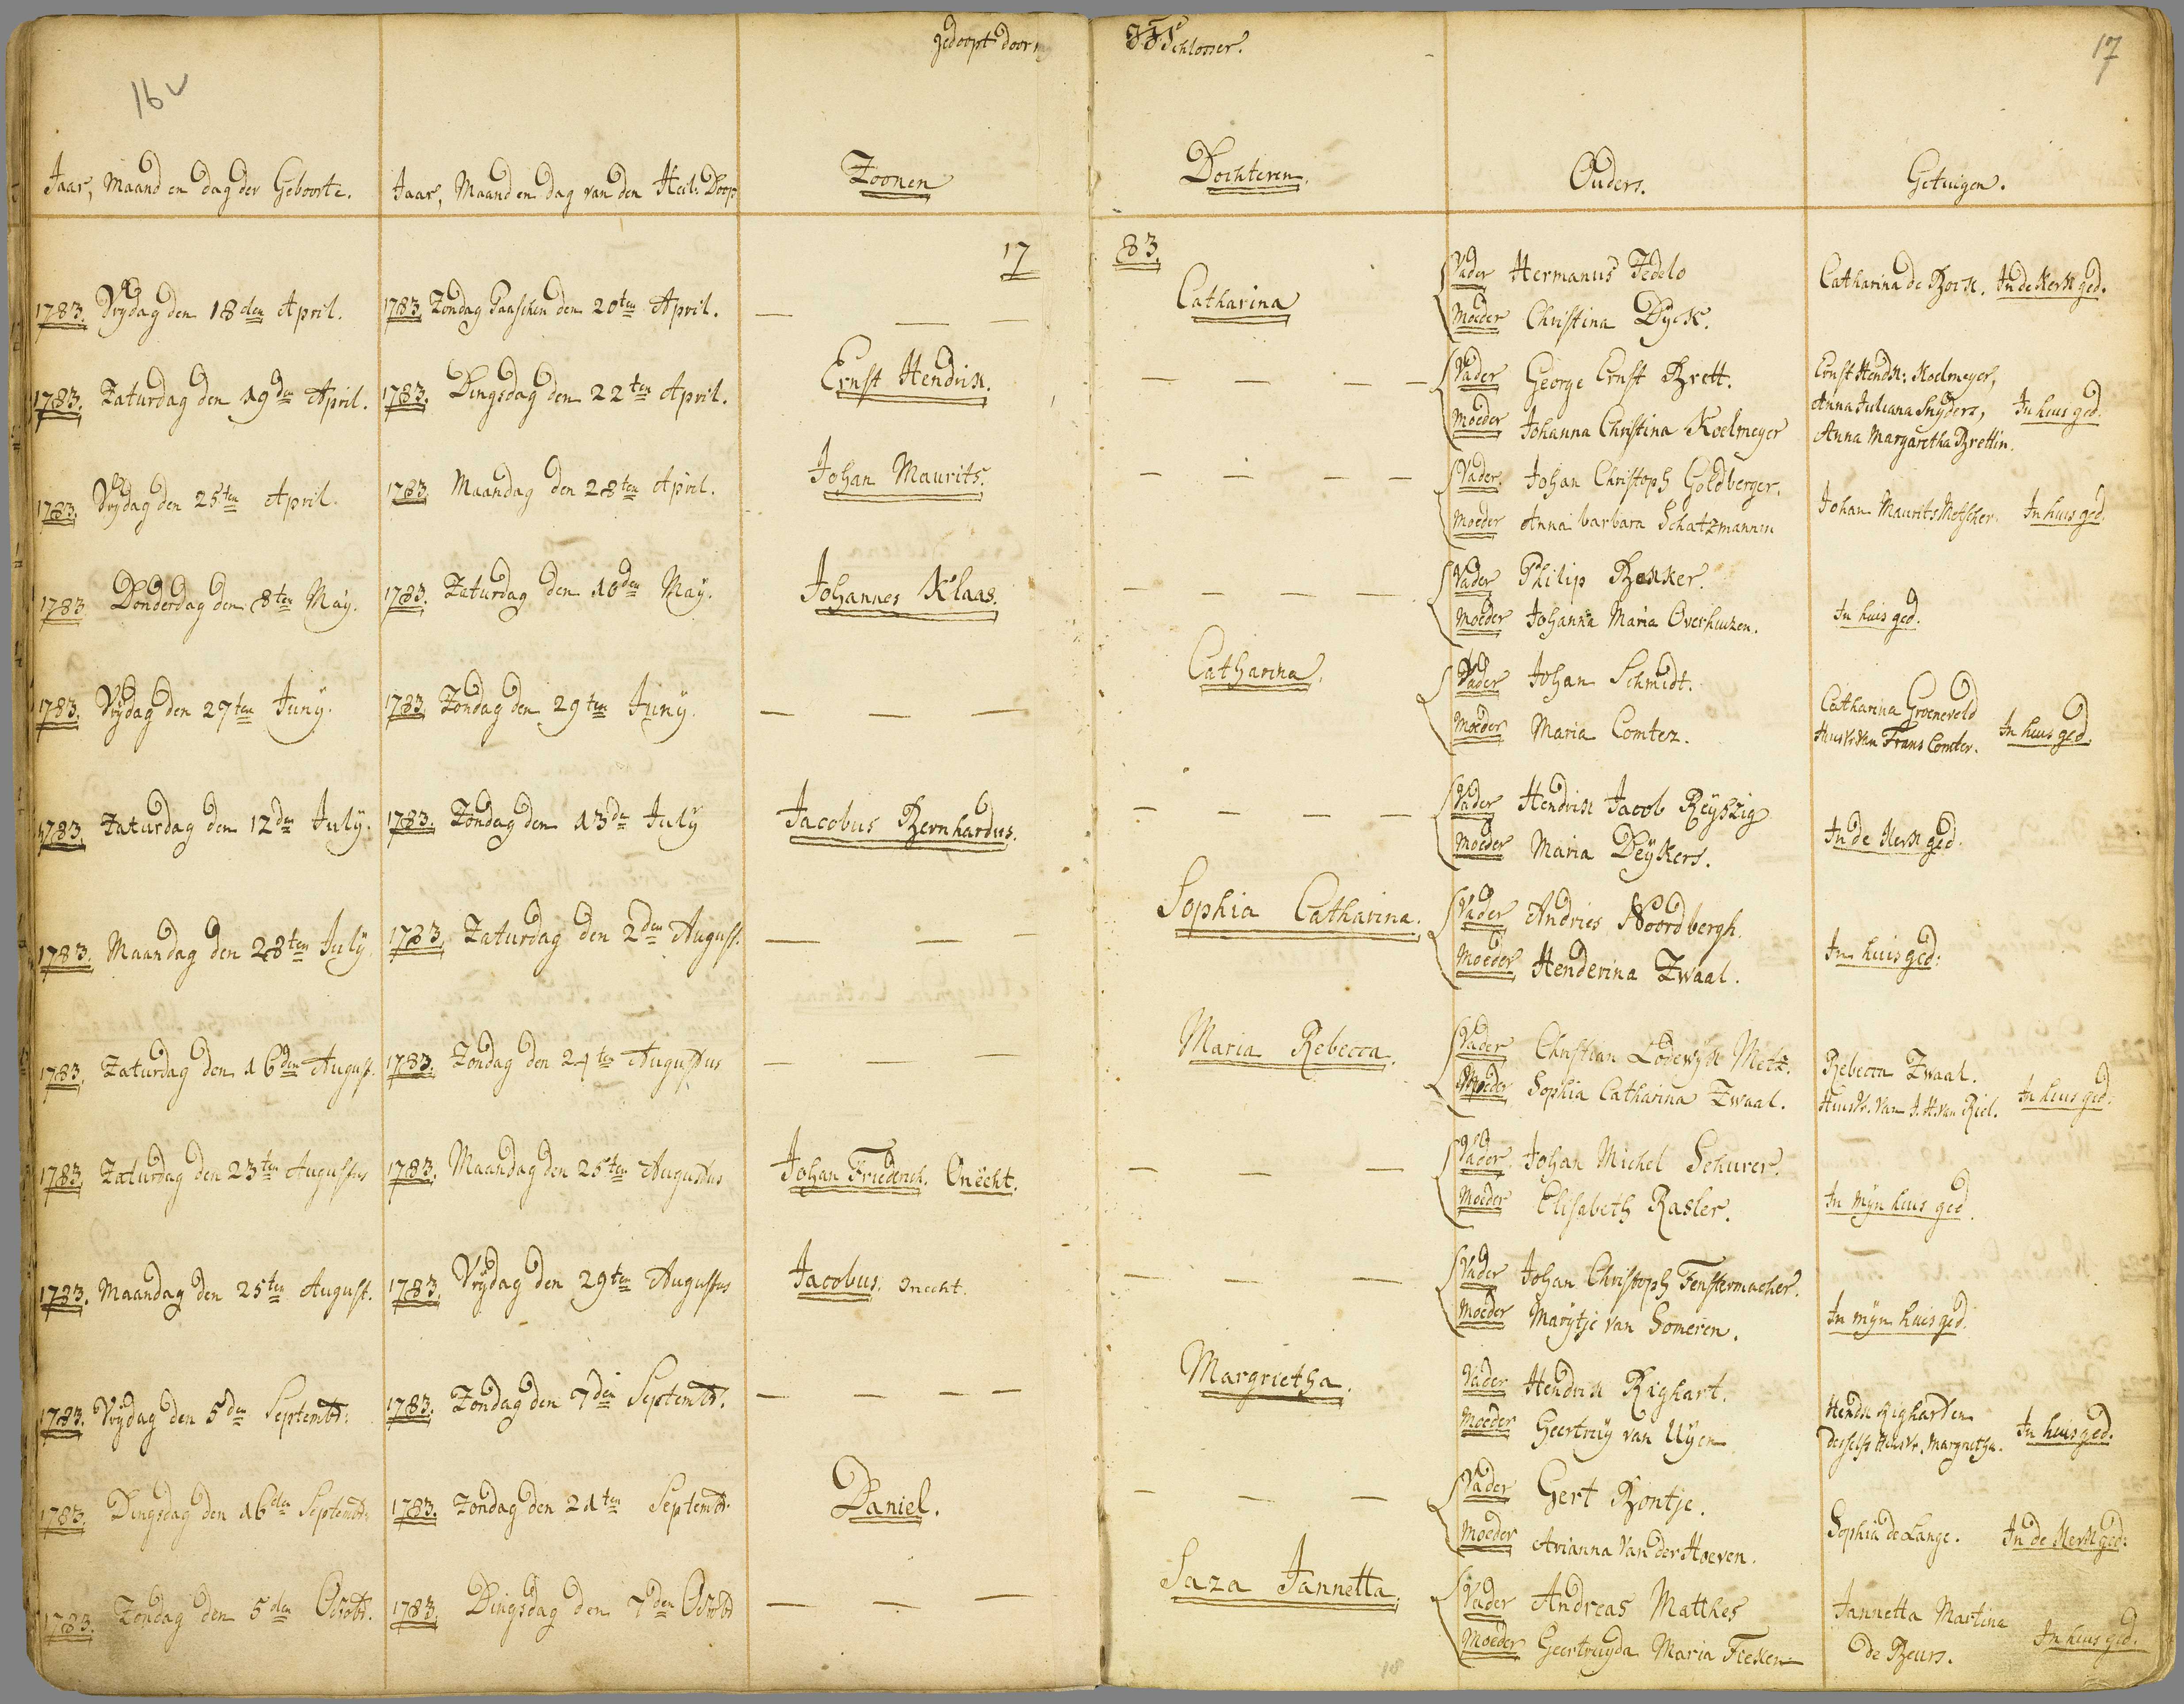 gedoopt door J J Schlosser.
16v
17
Jaar, Maand en dag der Geboorte. Jaar, Maand en dag van den Heil: Doop Zoonen Dochteren. Ouders. Getuigen.
17 83.
1783. Vrydag den 18den April. 1783. Zondag Paaschen den 20ten April. — — Catharina Vader Hermanus Fedelo Catharina de Bock. In de Kerk ged.
Moeder Christina Dyck.
1783. Zaturdag den 19den April. 1783. Dingsdag den 22ten April. Ernst Hendrik. — — — — Vader George Ernst Brett. Ernst Hendk: Koelmeyer,
Anna Juliana Snyders, In huis ged.
Moeder Johanna Christina Koelmeyer Anna Margaretha Brettin.
1783. Vrydag den 25ten April. 1783. Maandag den 28ten April. Johan Maurits. — — — — Vader. Johan Christoph Goldberger.
Moeder Anna barbara Schatzmannin Johan Maurits Metscher. In huis ged.
1783 Donderdag den 8ten May. 1783. Zaturdag den 10den May. Johannes Klaas. — — — — Vader Philip Bekker.
Moeder Johanna Maria Overhuizen. In huis ged.
1783. Vrydag den 27ten Juny. 1783. Zondag den 29ten Juny. — — — Catharina. Vader Johan Schmidt. Catharina Groeneveld
Moeder Maria Comtez. Huisvr. van Frans Comter. In huis ged.
1783. Zaturdag den 12den July. 1783. Zondag den 13de July Jacobus Bernhardus. — — — — Vader Hendrik Jacob Reyszig
Moeder Maria Deykers. In de Kerk ged.
1783. Maandag den 28ten July. 1783. Zaturdag den 2den August. — — — Sophia Catharina. Vader Andries Noordbergh.
Moeder Henderina Zwaal. In huis ged:
1783. Zaturdag den 16den August. 1783. Zondag den 24ten Augustus — — — Maria Rebecca. Vader Christian Lodewyk Metz. Rebecca Zwaal.
Moeder Sophia Catharina Zwaal. Huisvr. van J. H. van Riel. In huis ged:
1783. Zaturdag den 23ten Augustus 1783. Maandag den 25ten Augustus Johan Friedrich. Onecht. — — — Vader. Johan Michel Schurer.
Moeder Elisabeth Rasler. In myn huis ged.
1783. Maandag den 25ten August. 1783. Vrydag den 29ten Augustus Jacobus. Onecht. — — — Vader Johan Christoph Fenstermacher.
Moeder Marytje van Someren. In myn huis ged.
1783. Vrydag den 5den Septembr: 1783. Zondag den 7den Septembr. — — — — Margrietha. Vader Hendrik Righart. Hendk Righart en
Moeder Geertruy van Uyen desselfs Huisvr. Margrietha. In huis ged.
1783. Dingsdag den 16den Septembr: 1783. Zondag den 21ten Septembr. Daniel. — — — Vader Gert Bontje.
Moeder Arianna van der Hoeven. Sophia de Lange. In de Kerk ged:
1783. Zondag den 5den Octobr. 1783. Dingsdag den 7den Octobr — — — Saza Jannetta. Vader Andreas Matthes Jannetta Martina
Moeder Geertruyda Maria Fieken de Beurs. In huis ged.